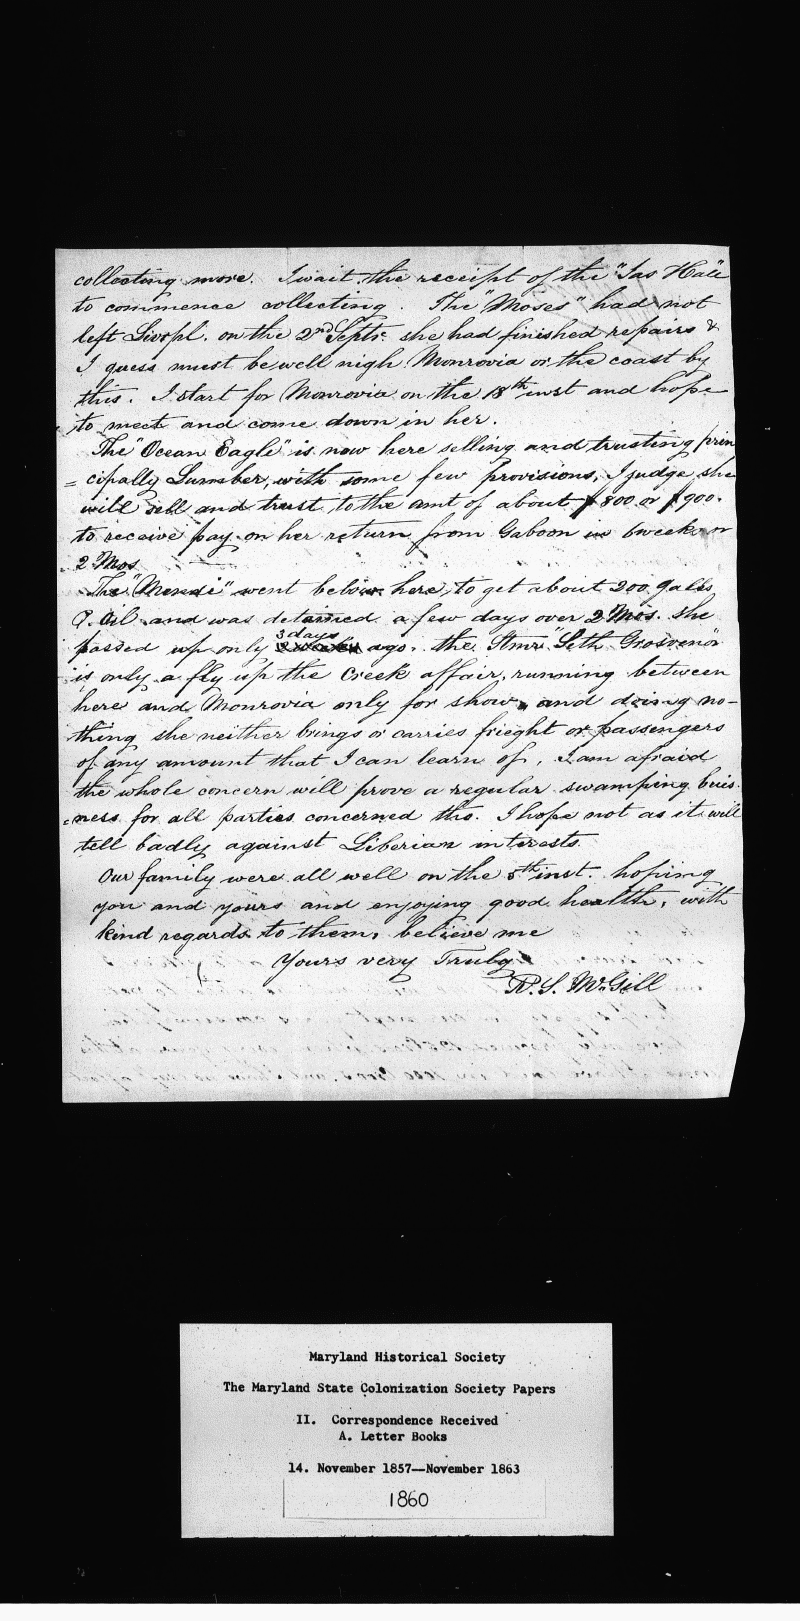 collecting more. I wait the receipt of the "Jas Hall"
to commence collecting. The "Moses" had not
left Livrpl. on the 2nd Septr. she had finished repairs &
I guess must be well nigh Monrovia or the coast by
this. I start for Monrovia on the 18th inst and hope
to meet and come down in her.
The "Ocean Eagle" is now here selling and trusting prin
=cipally Lumber, with some few provisions, I judge she
will sell and trust to the amt of about $800 or $900.
to receive pay on her return from Gaboon in 6 weeks or
2 Mos
The "Mendi" went below here, to get about 200 galls
P. Oil and was detained a few days over 2 Mos. she
passed up only 3 days ago. the Stmr "Seth Grosvenor"
is only a fly up the Creek affair, running between
here and Monrovia only for show, and doing no-
thing she neither brings or carries frieght or passengers
of any amount that I can learn of. I am afraid
the whole concern will prove a regular swamping buis
=ness for all parties concerned tho. I hope not as it will
tell badly against Liberian interests.
Our family were all well on the 5th inst. hoping
you and yours and enjoying good health, with
kind regards to them, believe me
Yours very Truly
R. S. McGill
Maryland Historical Society
The Maryland State Colonization Society Papers
II. Correspondence Received
A. Letter Books
14. November 1857--November 1863
1860